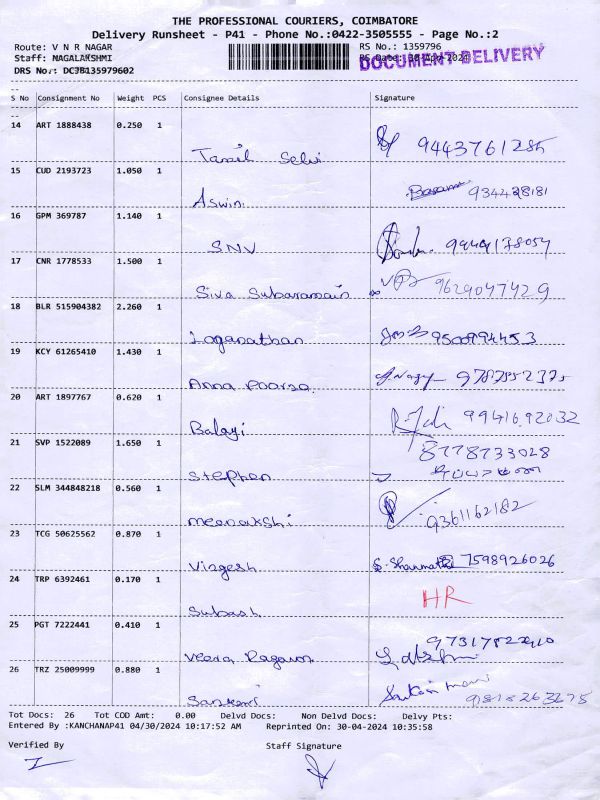 THE PROFESSIONAL COURIERS, COIMBATORE
Delivery Runsheet - P41 - Phone No.:0422-3505555 - Page No.:2
Route: V N R NAGAR RS No.: 1359796
Staff: NAGALAKSHMI RS Date: 30-Apr-2024 DOCUMENT DELIVERY
DRS No.: DCJB135979602
S No Consignment No Weight PCS Consignee Details Signature
14 ART 1888438 0.250 1
Tamil Selvi
15 CUD 2193723 1.050 1
Aswin
16 GPM 369787 1.140 1
SNV
17 CNR 1778533 1.500 1
Siva 9629047429
18 BLR 515904382 2.260 1
Loganathan
19 KCY 61265410 1.430 1
Anna Poorna
20 ART 1897767 0.620 1
Balaji 9941692032
21 SVP 1522089 1.650 1 8778733028
Stephen
22 SLM 344848218 0.560 1
Meenakshi 9361162182
23 TCG 50625562 0.870 1
7598926026
24 TRP 6392461 0.170 1 HR
Subash
25 PGT 7222441 0.410 1
Veera
26 TRZ 25009999 0.880 1
Tot Docs: 26 Tot COD Amt: 0.00 Delvd Docs: Non Delvd Docs: Delvy Pts:
Entered By :KANCHANAP41 04/30/2024 10:17:52 AM Reprinted On: 30-04-2024 10:35:58
Verified By Staff Signature